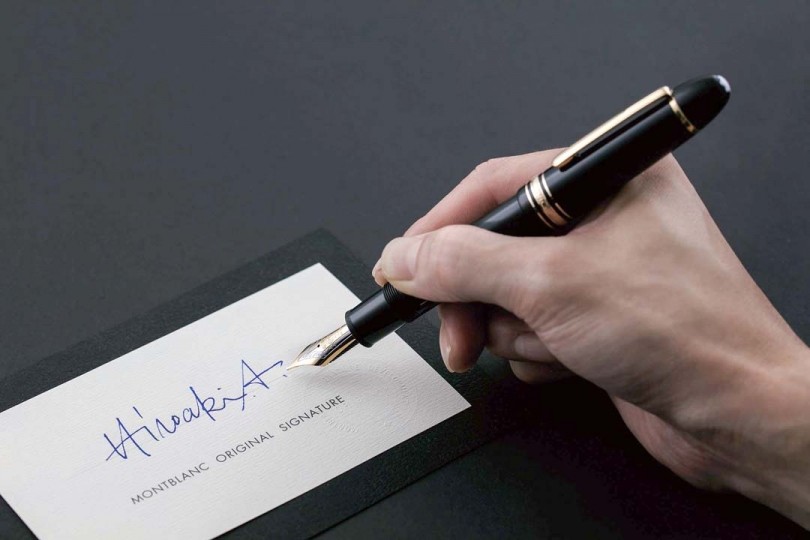 Hiroaki.A.
MONTBLANC ORIGINAL SIGNATURE